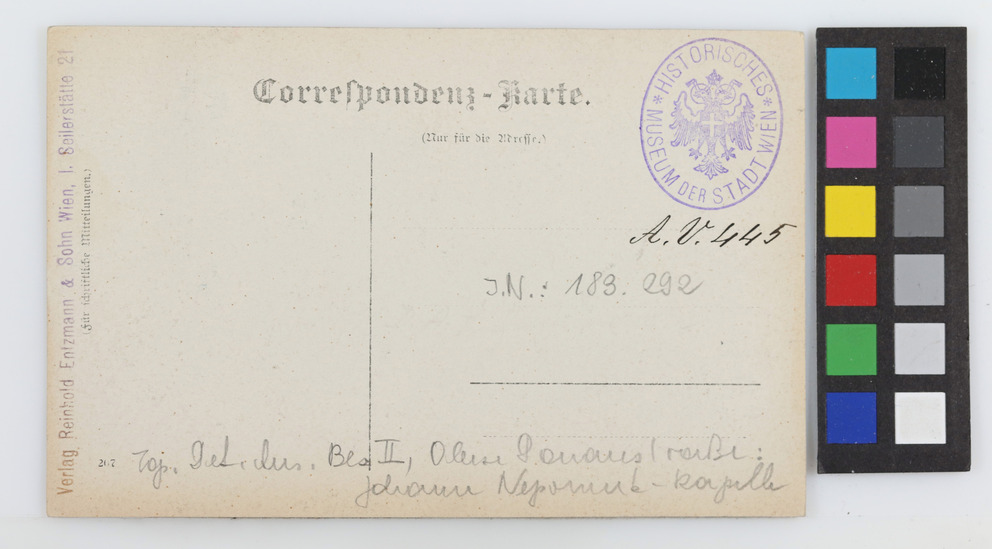 Correspondenz-Karte.
(Nur für die Adresse.)
HISTORISCHES MUSEUM DER STADT WIEN
A.V. 445
J.N.: 183. 292
Verlag Reinhold Entzmann & Sohn Wien, I. Seilerstätte 21
(Für schriftliche Mitteilungen.)
207
Top. Bez II, Obere Donaustraße:
Johann Nepomuk-Kapelle